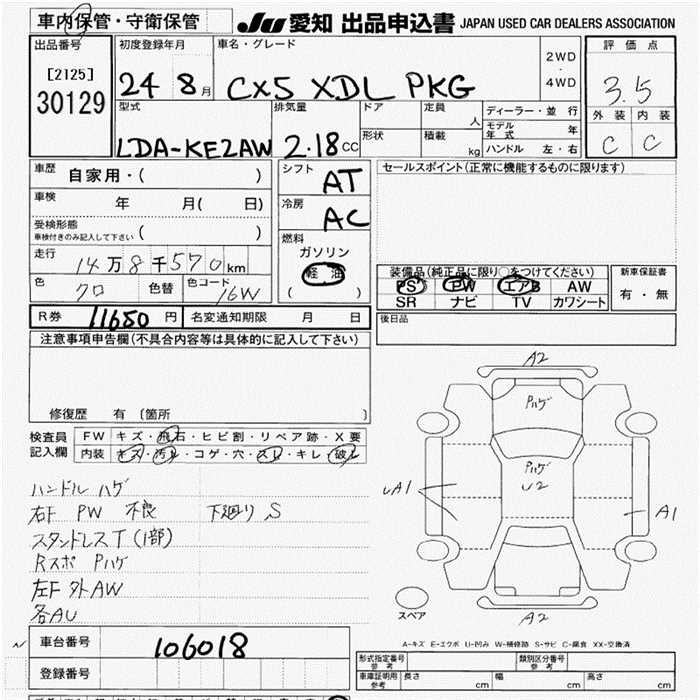 車内保管・守衛保管
JU 愛知 出品申込書 JAPAN USED CAR DEALERS ASSOCIATION
出品番号
[2125]
30129
初度登録年月
24 8月
車名・グレード
CX5 XDL PKG
2WD
・
4WD
評価点
3.5
外装 内装
C C
型式
LDA-KE2AW
排気量
2.18cc
ドア
形状
定員
人
積載
kg
ディーラー・並行
モデル年式 年
ハンドル 左・右
車歴 自家用・( )
車検 年 月( 日)
受検形態
車検付きのみ記入して下さい ( )
走行 14万8千570km
色 クロ 色替 色コード 16W
シフト AT
冷房 AC
燃料
ガソリン
軽油
( )
セールスポイント(正常に機能するものに限ります)
装備品(純正品に限り○をつけてください)
PS PW エアB AW
SR ナビ TV カワシート
新車保証書
有・無
後日品
R券 11650円 名変通知期限 月 日
注意事項申告欄(不具合内容等は具体的に記入して下さい)
修復歴 有〔箇所 〕
検査員記入欄
FW キズ・飛石・ヒビ割・リペア跡・X要
内装 キズ・汚レ・コゲ・穴・スレ・キレ・破レ
ハンドル ハゲ
右F PW 不良 下廻り S
スタンドレスT(1部)
Rスポ Pハゲ
左F 外AW
各AU
A2
Pハゲ
Pハゲ
U2
UA1
A1
A2
スペア
A-キズ E-エクボ U-凹み W-補修跡 S-サビ C-腐食 XX-交換済
車台番号 106018
登録番号
形式指定番号 参考
類別区分番号 参考
車庫証明用 参考 長さ cm 幅 cm 高さ cm